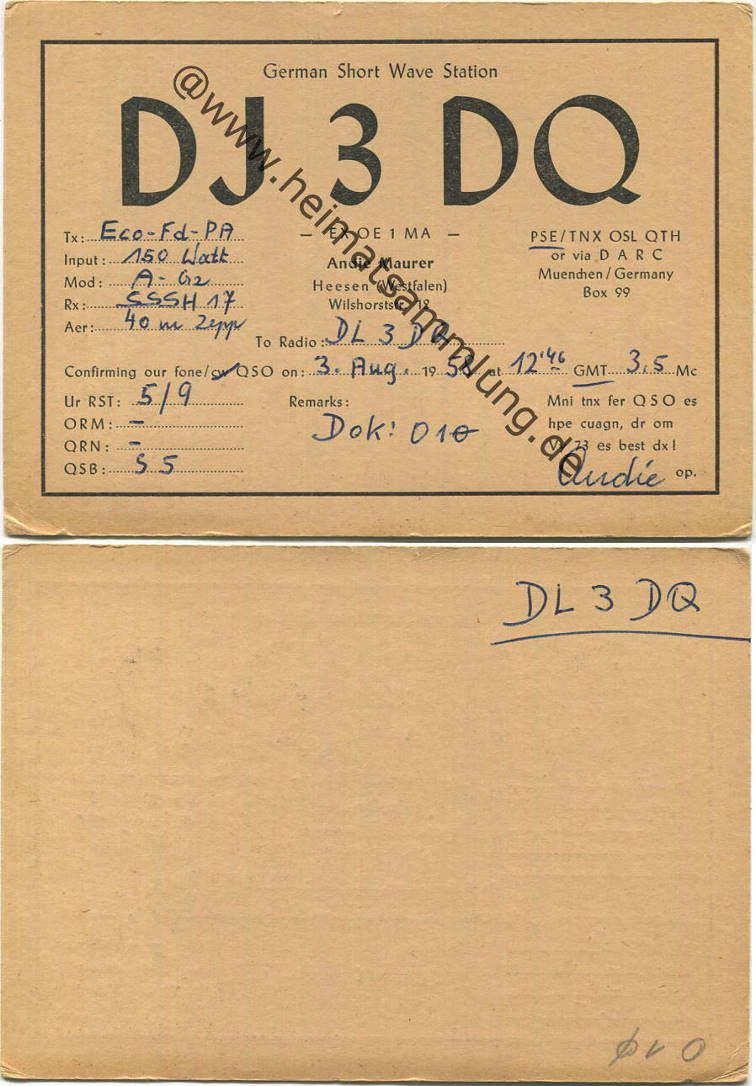 German Short Wave Station
DJ 3 DQ
Tx: Eco-Fd-PA
Input: 150 Watt
Mod: A-G2
Rx: SSSH 17
Aer: 40 m Zepp
— EX OE 1 MA —
Andie Maurer
Heesen (Westfalen)
Wilshorststr. 12
PSE/TNX QSL QTH
or via DARC
Muenchen/Germany
Box 99
To Radio: DL 3 DQ
Confirming our fone/cw QSO on: 3. Aug. 1958 at 12'46 GMT 3.5 Mc
Ur RST: 5/9
QRM: -
QRN: -
QSB: S 5
Remarks:
Dok: 010
Mni tnx fer QSO es
hpe cuagn, dr om
Vy 73 es best dx!
Andie op.
@www.heimatsammlung.de
DL 3 DQ